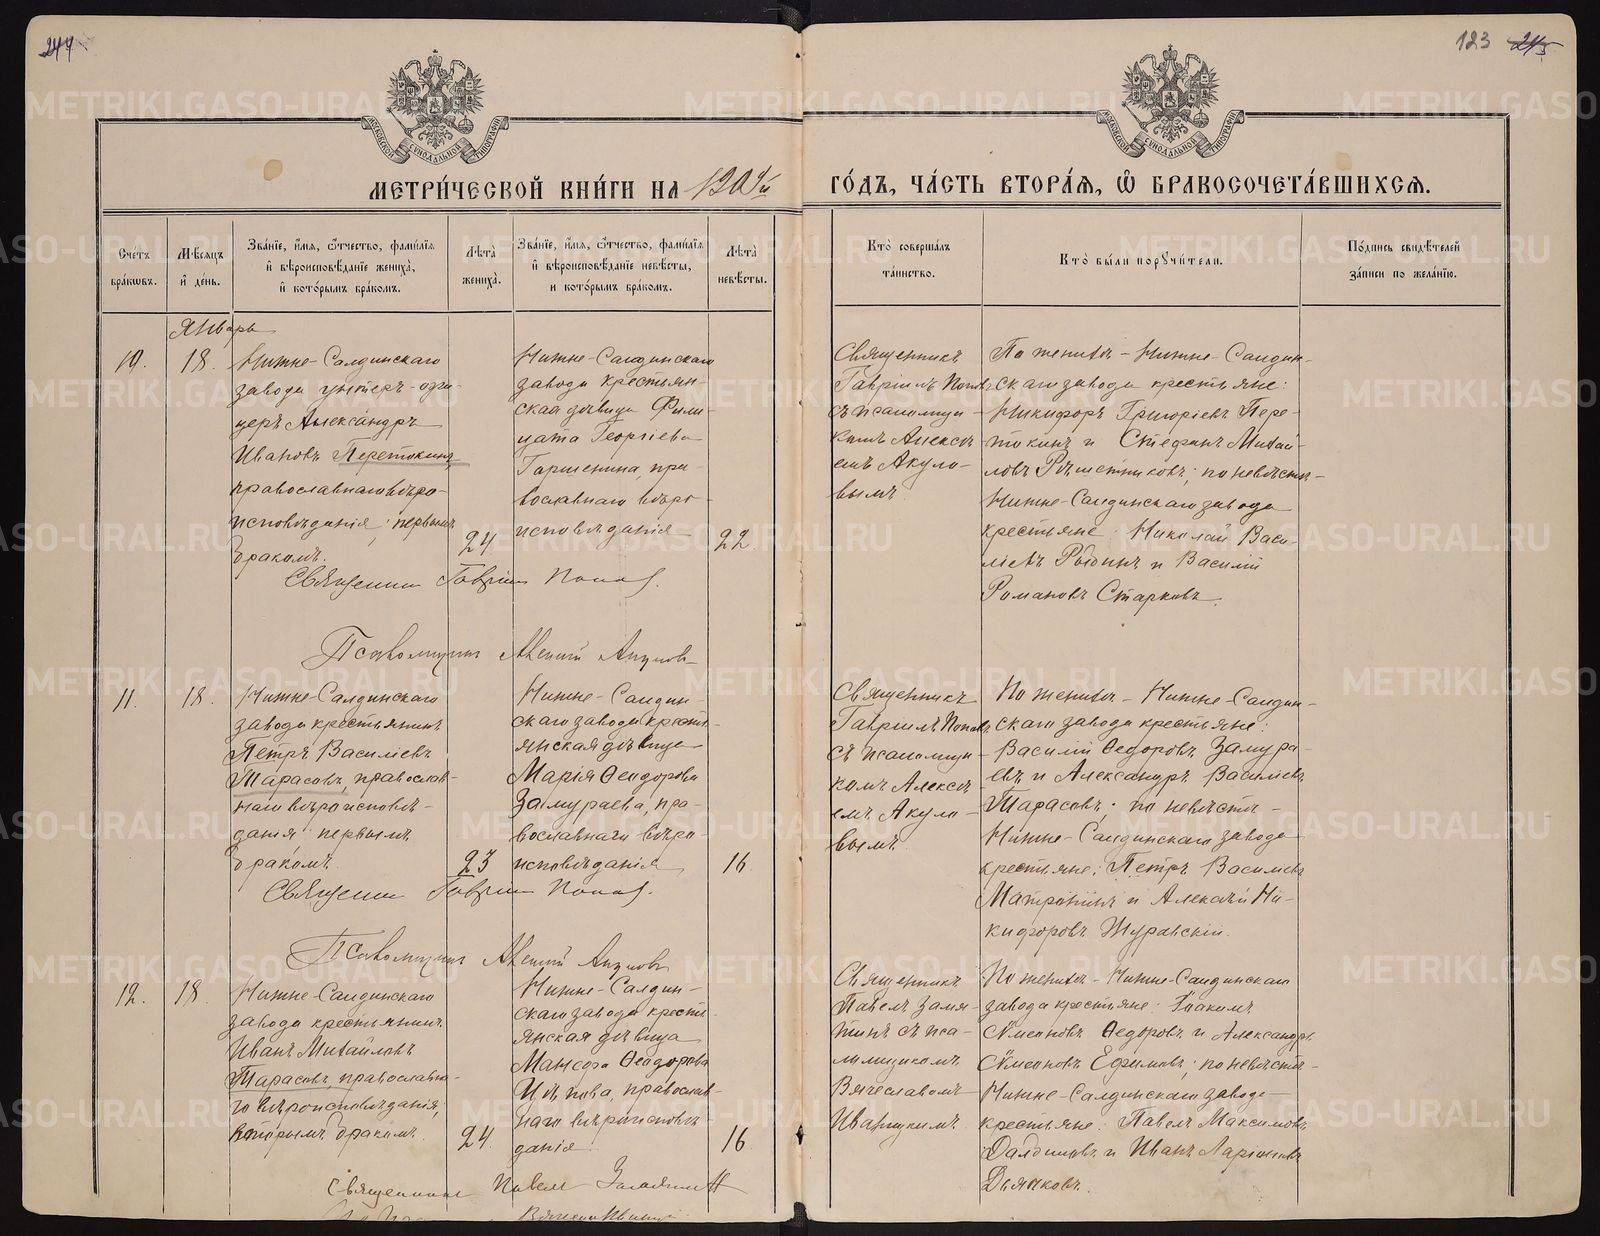 247
123 245
МЕТРИ́ЧЕСКОЙ КНИ́ГИ НА 1904й ГО́ДЪ, ЧА́СТЬ ВТОРА́Я, Ѽ БРАКОСОЧЕТА́ВШИХСЯ.
Сче́тъ бра́кѡвъ.
Мѣ́сяцъ и҆ де́нь.
Зва́нїе, и҆́мя, ѻ҆́тчество, фами́лїя
и҆ вѣроисповѣ́данїе жениха̀,
и҆ кото́рымъ бра́комъ.
Лѣ́та жениха̀.
Зва́нїе, и҆́мя, ѻ҆́тчество, фами́лїя
и҆ вѣроисповѣ́данїе невѣ́сты,
и кото́рымъ бра́комъ.
Лѣ́та невѣ́сты.
Кто̀ соверша́лъ
та́инство.
Кто̀ бы́ли порꙋчи́тели.
По́дпись свидѣ́телей
за́писи по жела́нїю.
Январь
10.
18.
Нижне-Салдинскаго
завода унтеръ-офи-
церъ Александръ
Ивановъ Перетокинъ,
православнаго вѣро-
исповѣданія; первымъ
бракомъ.
24
Нижне-Салдинскаго
завода крестьян-
ская дѣвица Фили-
цата Георгіева
Гаршенина, пра-
вославнаго вѣро-
исповѣданія
22
Священникъ
Гавріилъ Поповъ
съ псаломщи-
комъ Алексѣ-
емъ Акуло-
вымъ
По женихѣ - Нижне-Салдин-
скаго завода крестьяне:
Никифоръ Григоріевъ Пере-
токинъ и Стефанъ Михай-
ловъ Рѣшетниковъ; по невѣстѣ-
Нижне-Салдинскаго завода
крестьяне: Николай Васи-
ліевъ Родинъ и Василій
Романовъ Старковъ.
Священникъ Гавріилъ Поповъ.
Псаломщикъ Алексій Акуловъ
11.
18.
Нижне-Салдинскаго
завода крестьянинъ
Петръ Василіевъ
Тарасовъ, православ-
наго вѣроисповѣ-
данія; первымъ
бракомъ.
23
Нижне-Салдин-
скаго завода кресть-
янская дѣвица
Марія Ѳеодорова
Замураева, пра-
вославнаго вѣро-
исповѣданія
16
Священникъ
Гавріилъ Поповъ
съ псаломщи-
комъ Алексѣ-
емъ Акуло-
вымъ
По женихѣ - Нижне-Салдин-
скаго завода крестьяне:
Василій Ѳедоровъ Замура-
евъ и Александръ Василіевъ
Тарасовъ; по невѣстѣ -
Нижне-Салдинскаго завода
крестьяне: Петръ Василіевъ
Матронинъ и Алексѣй Ни-
кифоровъ Журавскій.
Священникъ Гавріилъ Поповъ.
Псаломщикъ Алексій Акуловъ
12.
18.
Нижне-Салдинскаго
завода крестьянинъ
Иванъ Михайловъ
Тарасовъ, православна-
го вѣроисповѣданія,
вторымъ бракомъ.
24
Нижне-Салдин-
скаго завода кресть-
янская дѣвица
Ѳеодорова
православ-
наго вѣроисповѣ-
данія
16
Священникъ
Павелъ Замя-
тинъ съ пса-
ломщикомъ
Вячеславомъ
По женихѣ - Нижне-Салдинскаго
завода крестьяне: Іоакимъ
Сѵмеоновъ Ѳедоровъ и Александръ
Сѵмеоновъ Ефимовъ; по невѣстѣ -
Нижне-Салдинскаго завода
крестьяне: Павелъ Максимовъ
и Иванъ Ларіоновъ
Дьячковъ.
Священникъ Павелъ Замятинъ